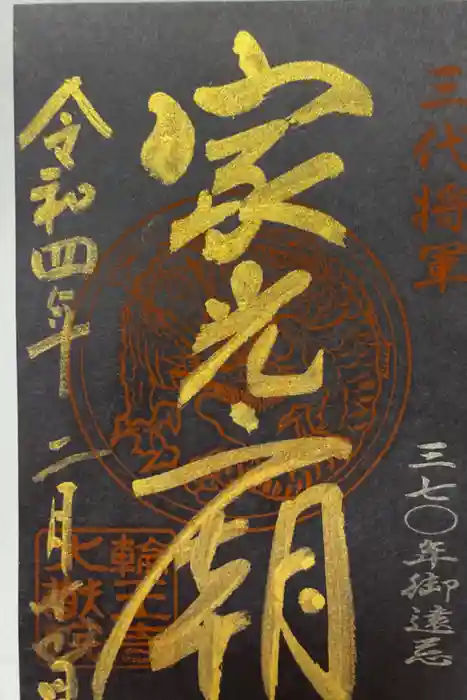 三代将軍
三七〇年御遠忌
家光廟
輪王寺
大猷院
令和四年二月廿四日